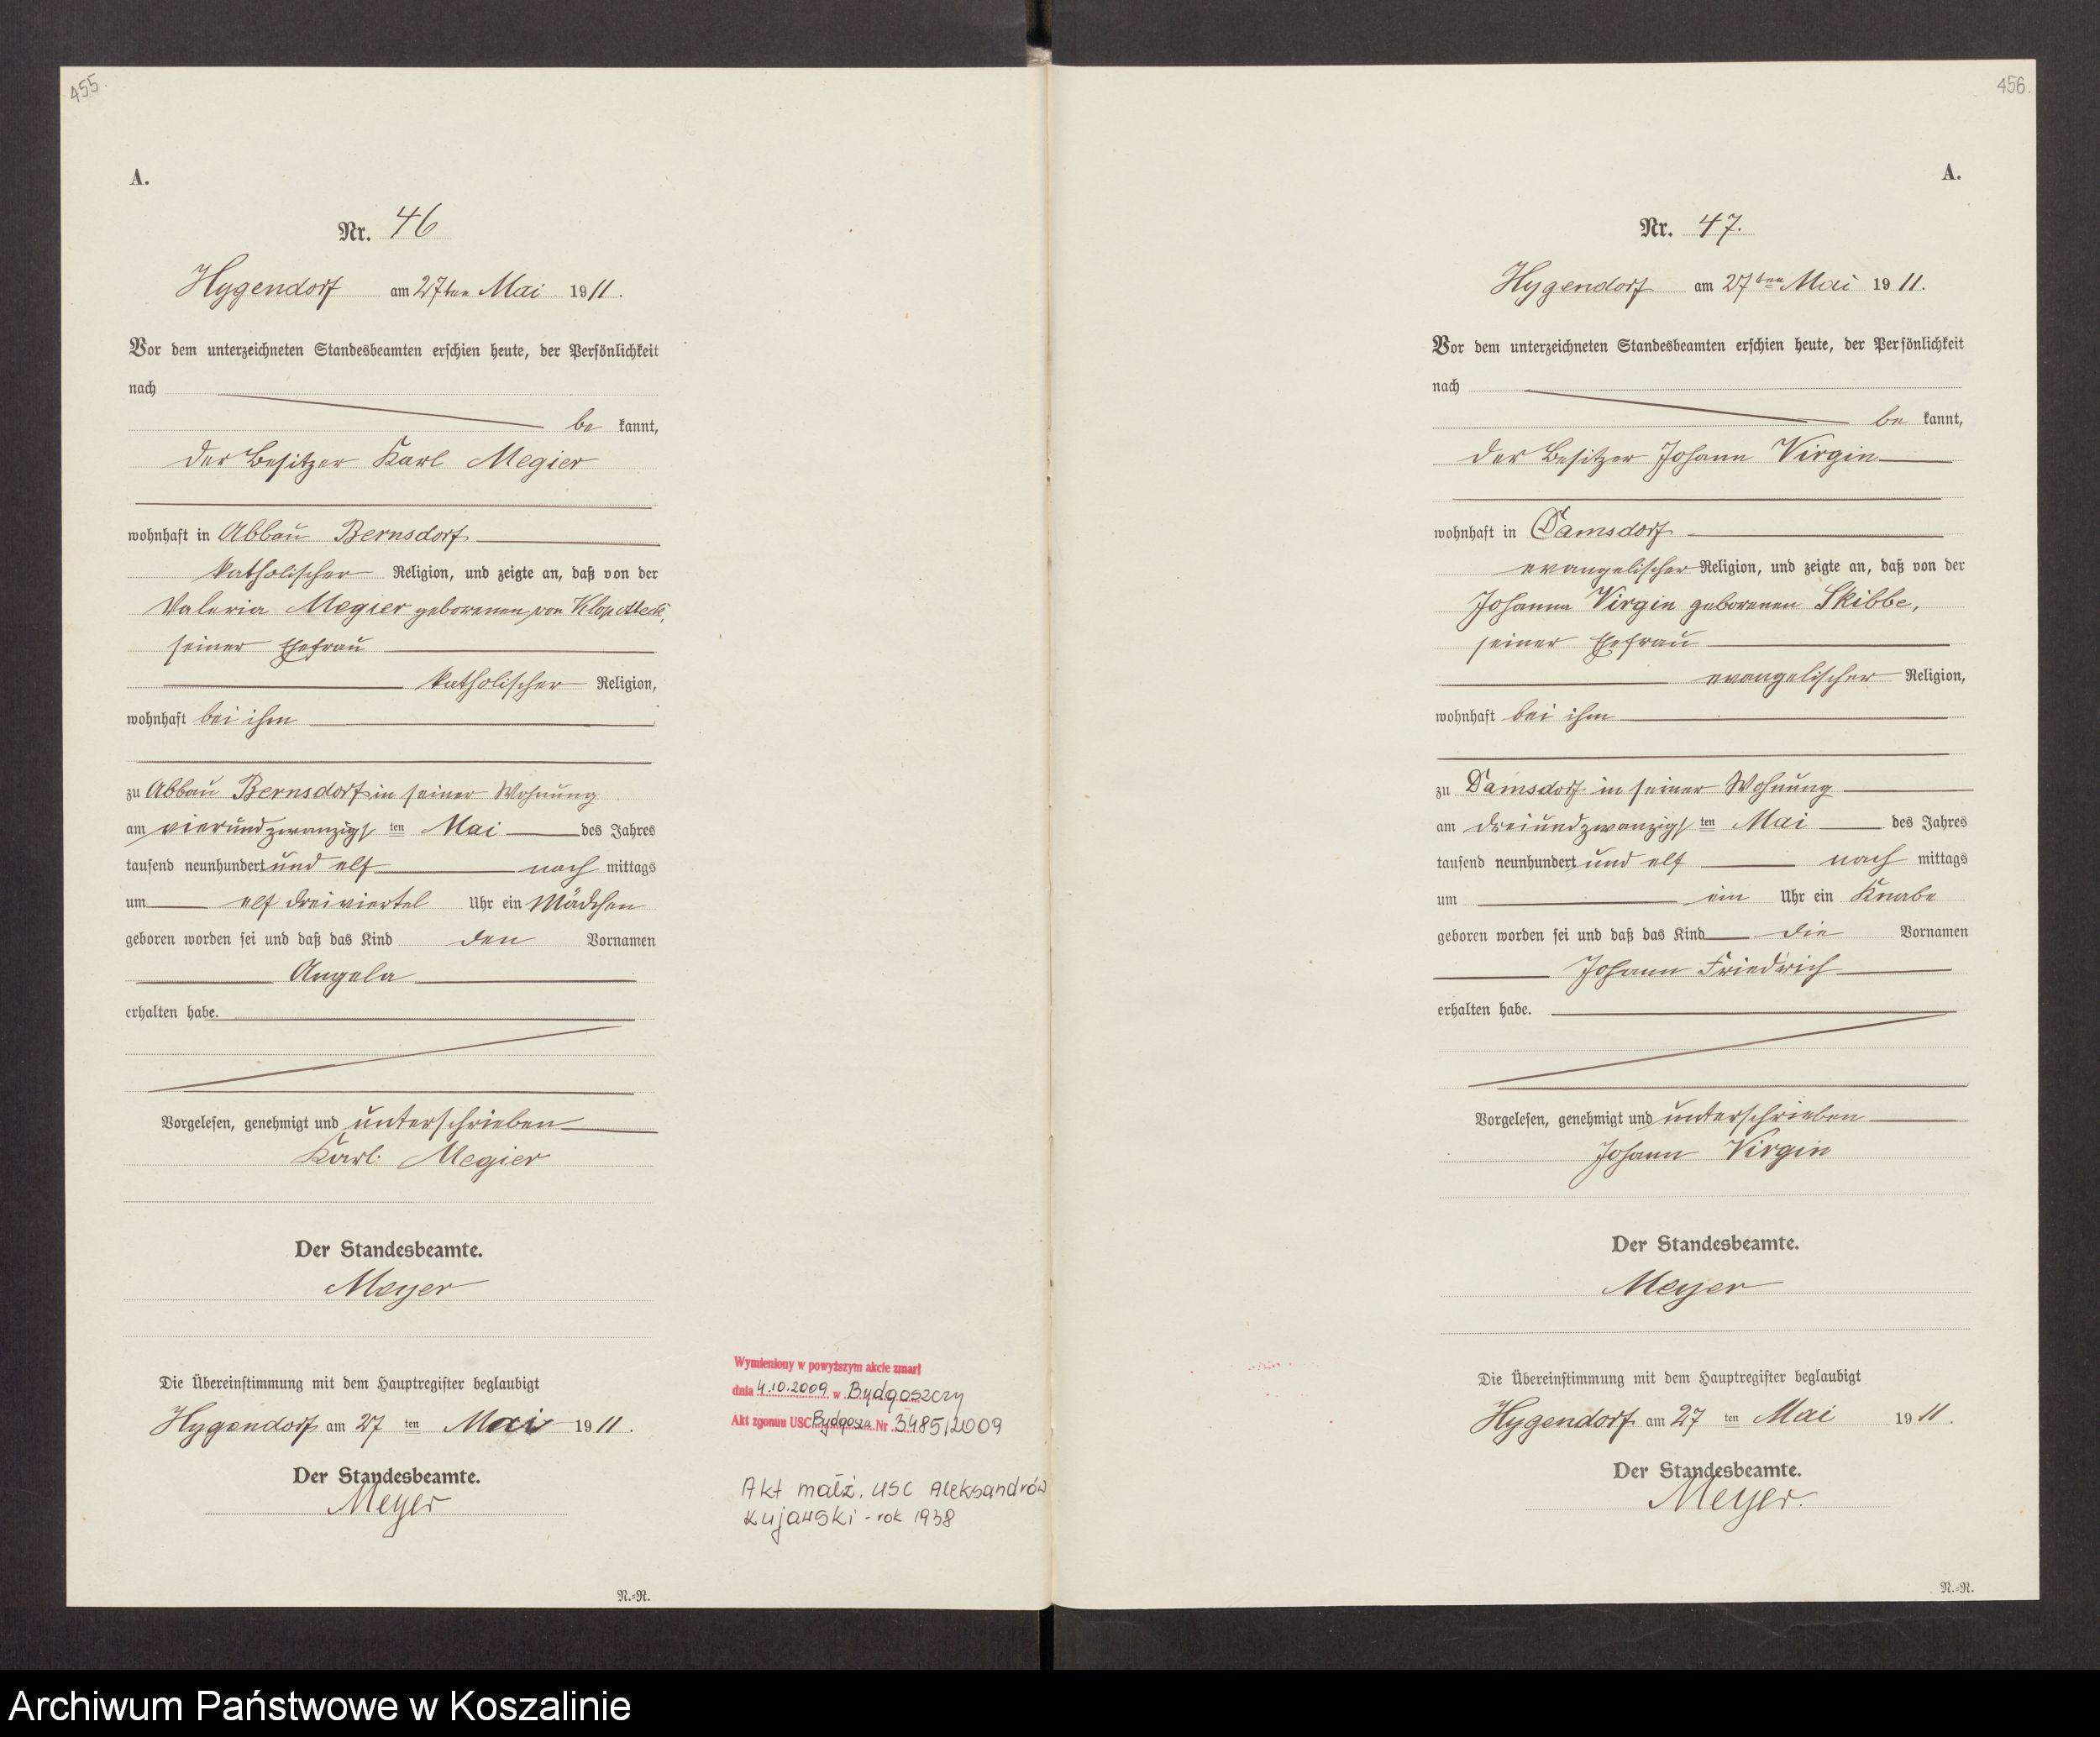 455.
A.
Nr. 46
Hygendorf am 27ten Mai 1911.
Vor dem unterzeichneten Standesbeamten erschien heute, der Persönlichkeit
nach
be kannt,
der Besitzer Karl Megier
wohnhaft in Abbau Bernsdorf
katholischer Religion, und zeigte an, daß von der
Valeria Megier geborenen von Klopotteck,
seiner Ehefrau
katholischer Religion,
wohnhaft bei ihm
zu Abbau Bernsdorf in seiner Wohnung
am vierundzwanzigsten Mai des Jahres
tausend neunhundert und elf nach mittags
um elf dreiviertel Uhr ein Mädchen
geboren worden sei und daß das Kind den Vornamen
Angela
erhalten habe.
Vorgelesen, genehmigt und unterschrieben
Karl Megier
Der Standesbeamte.
Meyer
Die Übereinstimmung mit dem Hauptregister beglaubigt
Hygendorf am 27 ten Mai 1911.
Der Standesbeamte.
Meyer
N.=N.
Wymieniony w powyższym akcie zmarł
dnia 4.10.2009 w Bydgoszczy
Akt zgonu USC Bydgoszcz Nr 3485/2009
Akt małż. USC Aleksandrów
Kujawski - rok 1938
456.
A.
Nr. 47.
Hygendorf am 27ten Mai 1911.
Vor dem unterzeichneten Standesbeamten erschien heute, der Persönlichkeit
nach
be kannt,
der Besitzer Johann Virgin
wohnhaft in Damsdorf
evangelischer Religion, und zeigte an, daß von der
Johanna Virgin geborenen Skibbe,
seiner Ehefrau
evangelischer Religion,
wohnhaft bei ihm
zu Damsdorf in seiner Wohnung
am dreiundzwanzigsten Mai des Jahres
tausend neunhundert und elf nach mittags
um ein Uhr ein Knabe
geboren worden sei und daß das Kind die Vornamen
Johann Friedrich
erhalten habe.
Vorgelesen, genehmigt und unterschrieben
Johann Virgin
Der Standesbeamte.
Meyer
Die Übereinstimmung mit dem Hauptregister beglaubigt
Hygendorf am 27 ten Mai 1911.
Der Standesbeamte.
Meyer.
N.=N.
Archiwum Państwowe w Koszalinie